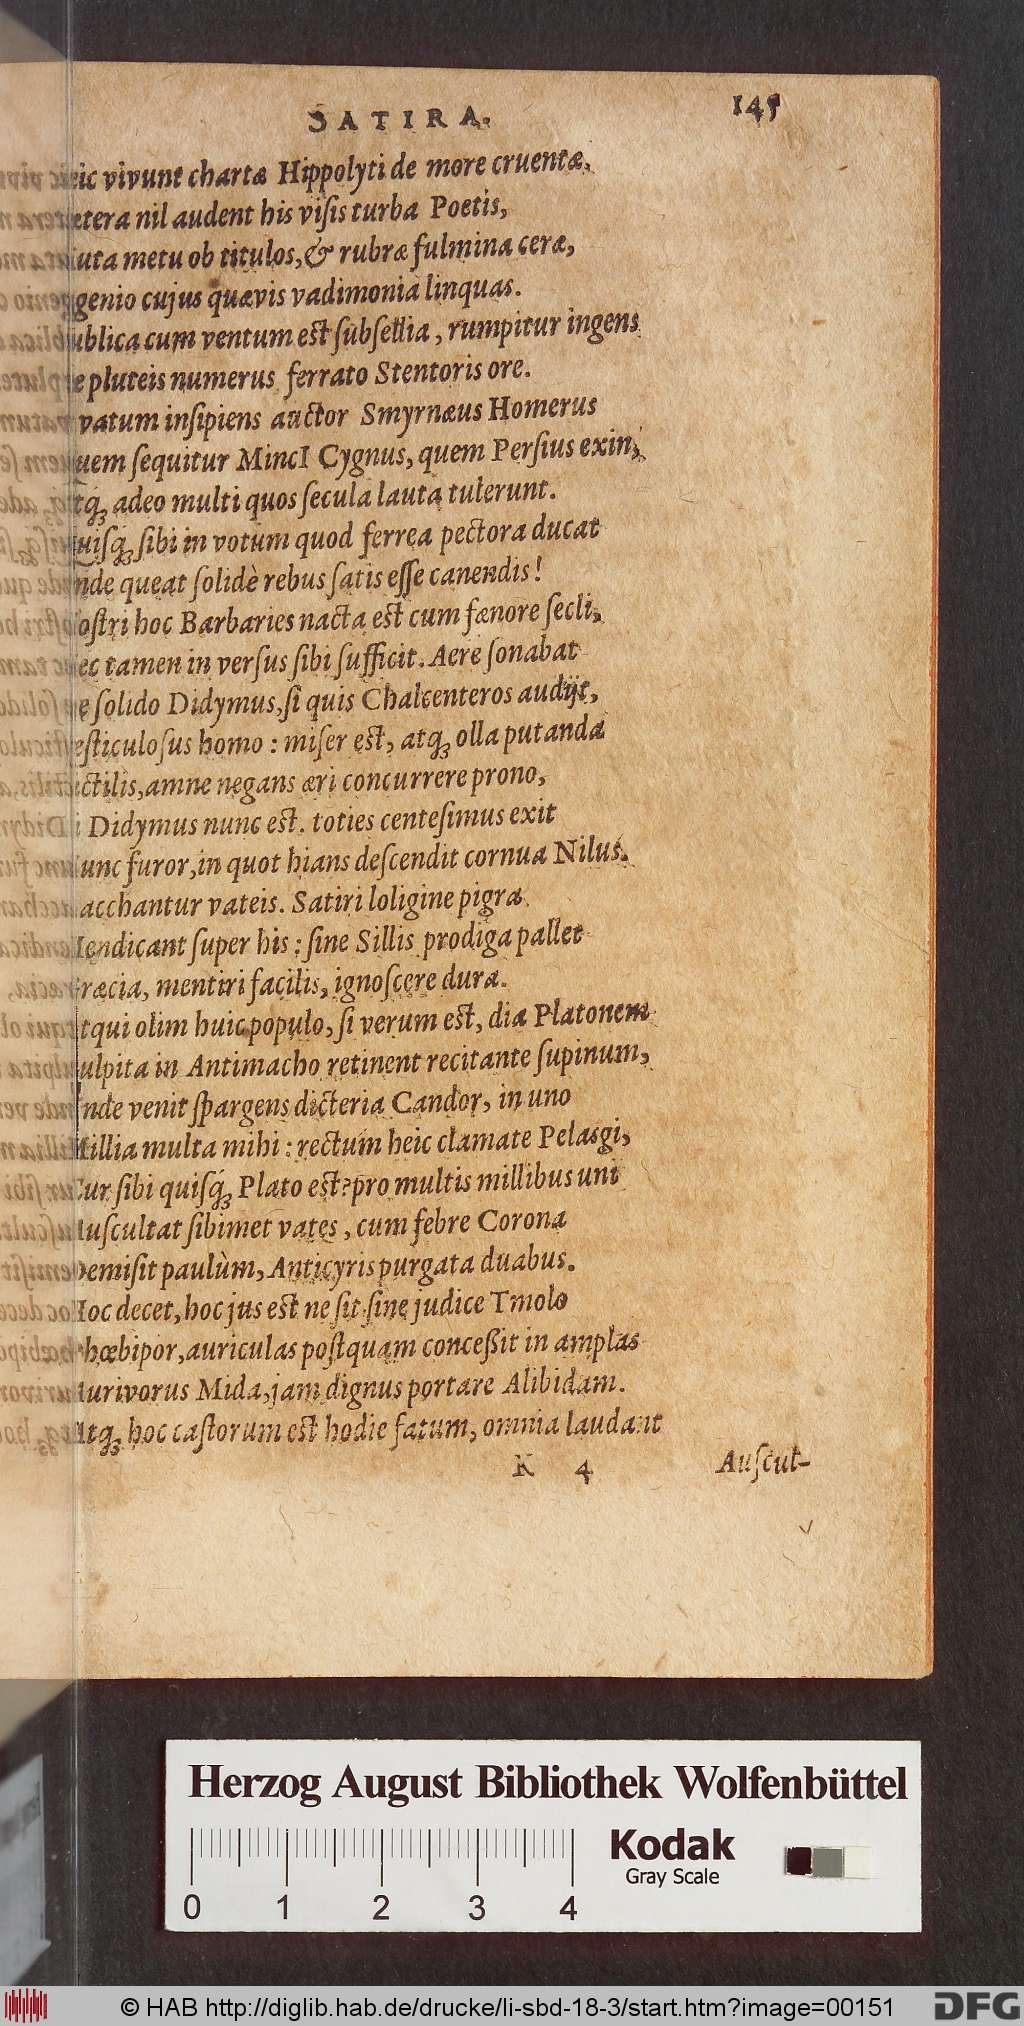 SATIRA. 145
eic vivunt chartæ Hippolyti de more cruentæ,
etera nil audent his visis turba Poetis,
iuta metu ob titulos, & rubræ fulmina ceræ,
genio cujus quævis vadimonia linquas.
ublica cum ventum est subsellia, rumpitur ingens
e pluteis numerus ferrato Stentoris ore.
vatum insipiens auctor Smyrnæus Homerus
uem sequitur MincI Cygnus, quem Persius exin,
tq; adeo multi quos secula lauta tulerunt.
uisq; sibi in votum quod ferrea pectora ducat
nde queat solidè rebus satis esse canendis!
ostri hoc Barbaries nacta est cum fœnore secli,
ec tamen in versus sibi sufficit. Aere sonabat
e solido Didymus, si quis Chalcenteros audijt,
esticulosus homo : miser est, atq; olla putanda
ictilis, amne negans æri concurrere prono,
i Didymus nunc est. toties centesimus exit
unc furor, in quot hians descendit cornua Nilus.
acchantur vateis. Satiri loligine pigra
endicant super his : sine Sillis prodiga pallet
ræcia, mentiri facilis, ignoscere dura.
tqui olim huic populo, si verum est, dia Platonem
ulpita in Antimacho retinent recitante supinum,
nde venit spargens dicteria Candor, in uno
Millia multa mihi : rectum heic clamate Pelasgi,
Cur sibi quisq; Plato est? pro multis millibus uni
Auscultat sibimet vates, cum febre Corona
Demisit paulùm, Anticyris purgata duabus.
Hoc decet, hoc jus est ne sit sine judice Tmolo
Phœbipor, auriculas postquam concessit in amplas
Aurivorus Mida, jam dignus portare Alibidam.
Atq; hoc castorum est hodie fatum, omnia laudant
K 4 Auscut-
Herzog August Bibliothek Wolfenbüttel
0 1 2 3 4
Kodak
Gray Scale
© HAB http://diglib.hab.de/drucke/li-sbd-18-3/start.htm?image=00151
DFG